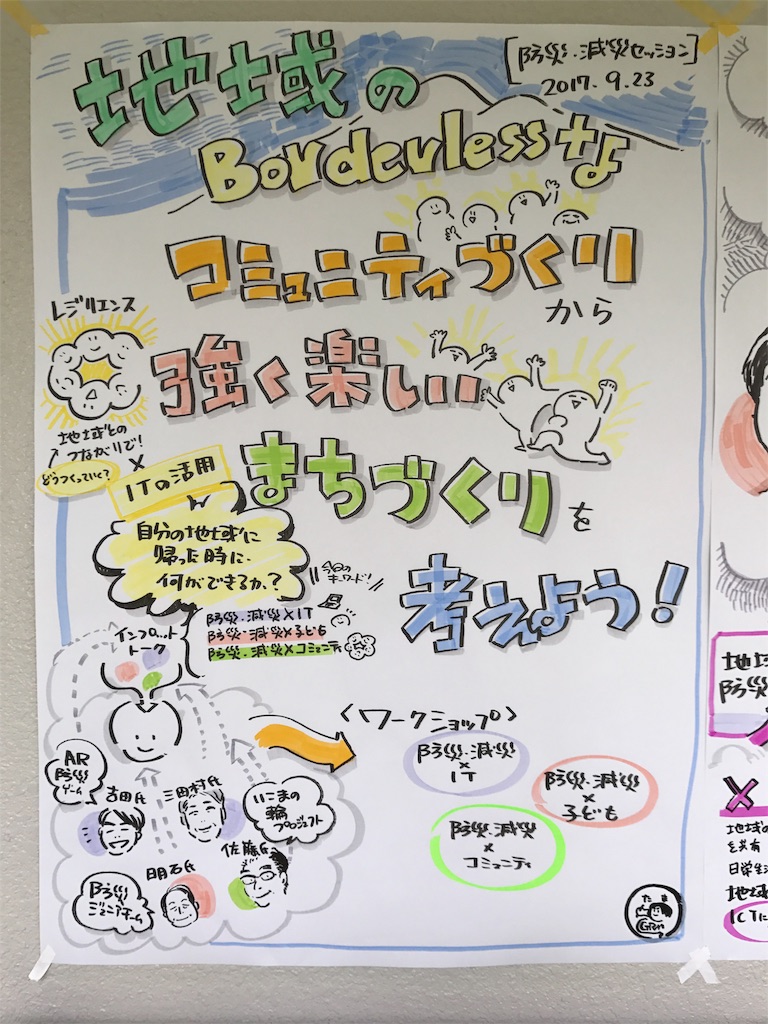 [防災・減災セッション]
2017.9.23
地域の
Borderlessな
コミュニティづくり
から
強く楽しい
まちづくりを
考えよう!
レジリエンス
地域との
つながりで!
どうつくっていく?
×
ITの活用
自分の地域に
帰った時に、
何ができるか?
今日の
キーワード!
防災・減災×IT
防災・減災×子ども
防災・減災×コミュニティ
インプット
トーク
AR
防災
ゲーム
吉田氏
三田村氏
いこまの
輪
プロジェクト
佐藤氏
明石氏
防災
ジュニアチーム
<ワークショップ>
防災・減災
×
IT
防災・減災
×
子ども
防災・減災
×
コミュニティ
たま
Gra
地域
防災
×
地域の
を共有
日常生
地域
ICTに